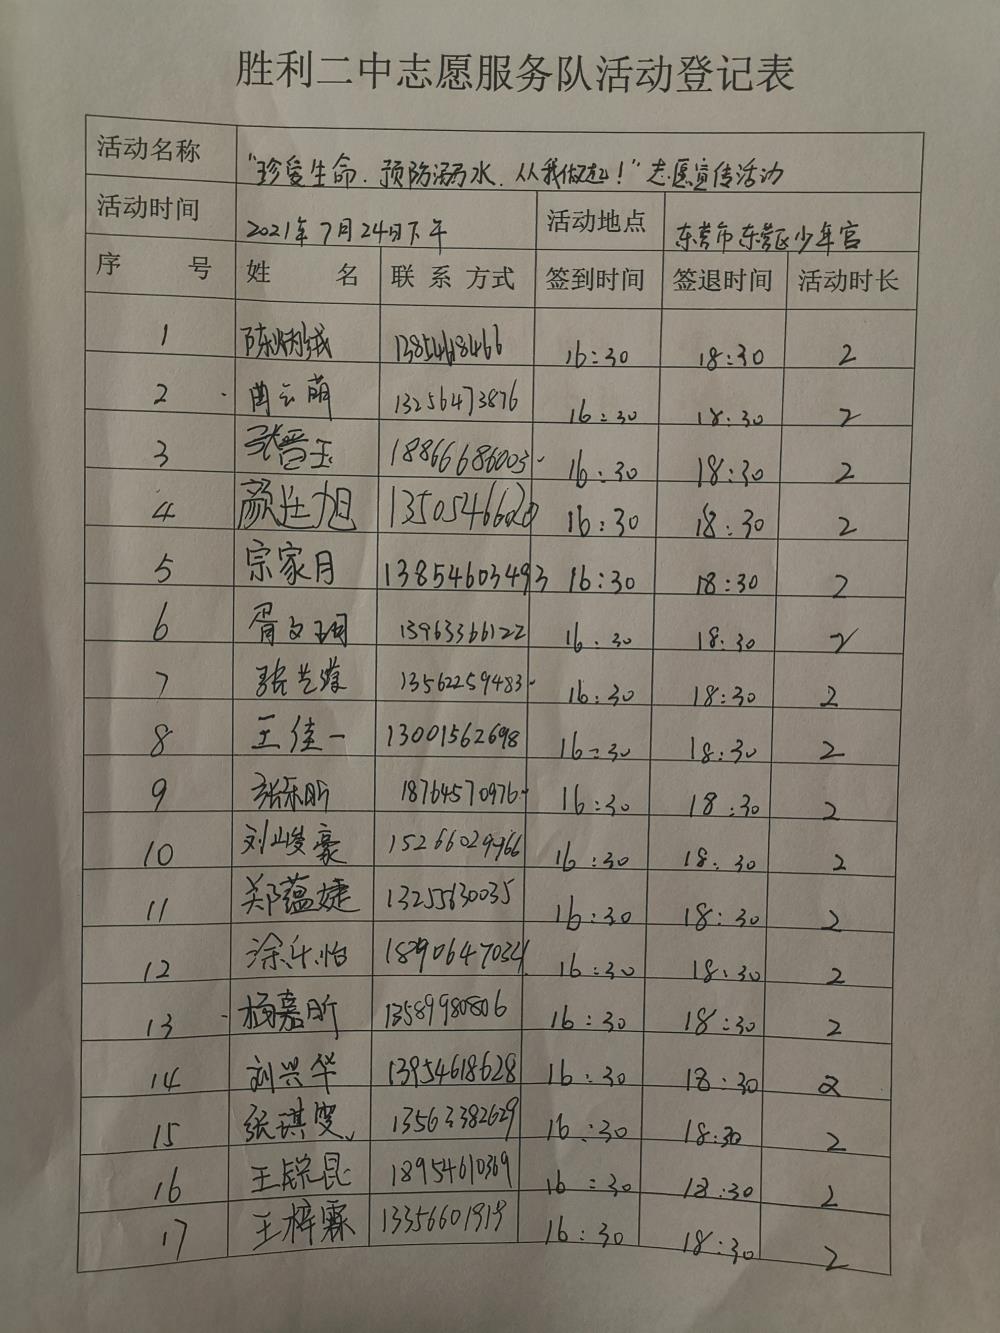 胜利二中志愿服务队活动登记表
活动名称 "珍爱生命.预防溺水.从我做起!"志愿宣传活动
活动时间 2021年7月24日下午 活动地点 东营市东营区少年宫
序号 姓名 联系方式 签到时间 签退时间 活动时长
1 13854618466 16:30 18:30 2
2 曲云萌 13256473876 16:30 18:30 2
3 张晋玉 18866686003 16:30 18:30 2
4 颜廷旭 13505466020 16:30 18:30 2
5 宗家月 13854603493 16:30 18:30 2
6 胥文珂 13963366122 16:30 18:30 2
7 13562259483 16:30 18:30 2
8 王佳一 13001562698 16:30 18:30 2
9 张乐昕 18764570976 16:30 18:30 2
10 刘峻豪 15266029966 16:30 18:30 2
11 郑蕴婕 13255630035 16:30 18:30 2
12 涂乐怡 18906647034 16:30 18:30 2
13 杨嘉昕 13589980806 16:30 18:30 2
14 刘兴华 13954618628 16:30 18:30 2
15 张琪雯 13563382629 16:30 18:30 2
16 王锐昆 18954610369 16:30 18:30 2
17 王梓霖 13356601919 16:30 18:30 2